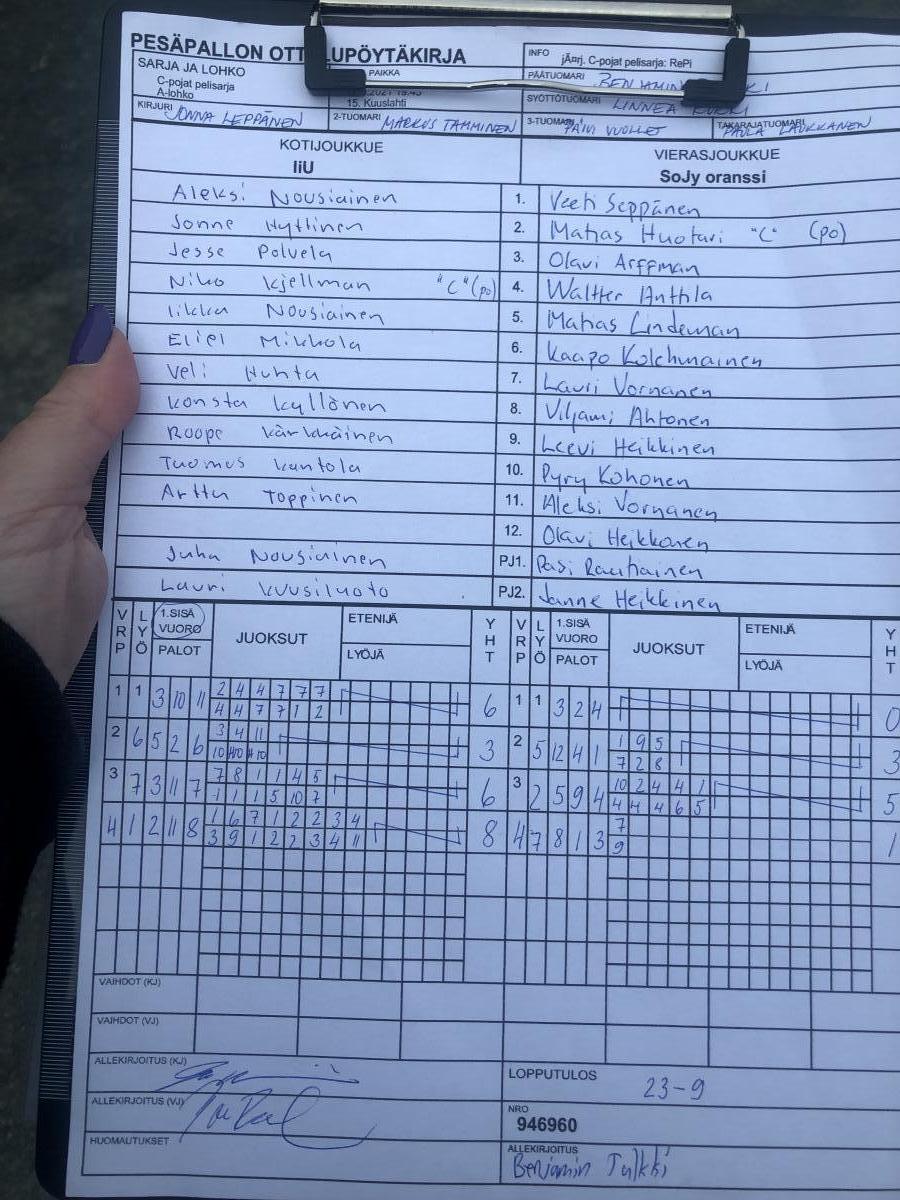 PESÄPALLON OTT LUPÖYTÄKIRJA
INFO jÃ¤rj. C-pojat pelisarja: RePi
SARJA JA LOHKO
C-pojat pelisarja
A-lohko
PAIKKA
15. Kuuslahti
PÄÄTUOMARI BENJAMIN
SYÖTTÖTUOMARI LINNEA
KIRJURI JONNA LEPPÄNEN
2-TUOMARI MARKUS TAMMINEN
3-TUOMARI PÄIVI VUOLLET
TAKARAJATUOMARI PAULA LAUKKANEN
KOTIJOUKKUE
IiU
VIERASJOUKKUE
SoJy oranssi
Aleksi Nousiainen 1. Veeti Seppänen
Jonne Hyttinen 2. Matias Huotari "C" (po)
Jesse Polvela 3. Olavi Arffman
Niko Kjellman "C" (po) 4. Waltter Anttila
Iikka Nousiainen 5. Matias Lindeman
Eliel Mikkola 6. Kaapo Kolehmainen
Veli Huhta 7. Lauri Vornanen
Konsta Kyllönen 8. Viljami Ahtonen
Roope Kärkkäinen 9. Leevi Heikkinen
Tuomas Kantola 10. Pyry Kohonen
Arttu Toppinen 11. Aleksi Vornanen
12. Olavi Heikkonen
Juha Nousiainen PJ1. Pasi Rautiainen
Lauri Kuusiluoto PJ2. Janne Heikkinen
VRP LYÖ 1.SISÄ VUORO PALOT JUOKSUT ETENIJÄ LYÖJÄ YHT VRP LYÖ 1.SISÄ VUORO PALOT JUOKSUT ETENIJÄ LYÖJÄ YHT
1 1 3 10 11 2 4 4 7 7 7 6 1 1 3 2 4 0
4 4 7 7 1 2
2 6 5 2 6 3 4 11 3 2 5 12 4 1 1 9 5 3
7 2 8
3 7 3 11 7 7 8 1 1 4 5 6 3 2 5 9 4 10 2 4 4 1 5
1 1 1 5 10 7 4 4 4 6 5
4 1 2 11 8 1 6 7 1 2 2 3 4 8 4 7 8 1 3 7 1
3 9 1 2 2 3 4 11 9
VAIHDOT (KJ)
VAIHDOT (VJ)
ALLEKIRJOITUS (KJ)
LOPPUTULOS 23-9
ALLEKIRJOITUS (VJ)
NRO
946960
HUOMAUTUKSET
ALLEKIRJOITUS
Benjamin Tulkki